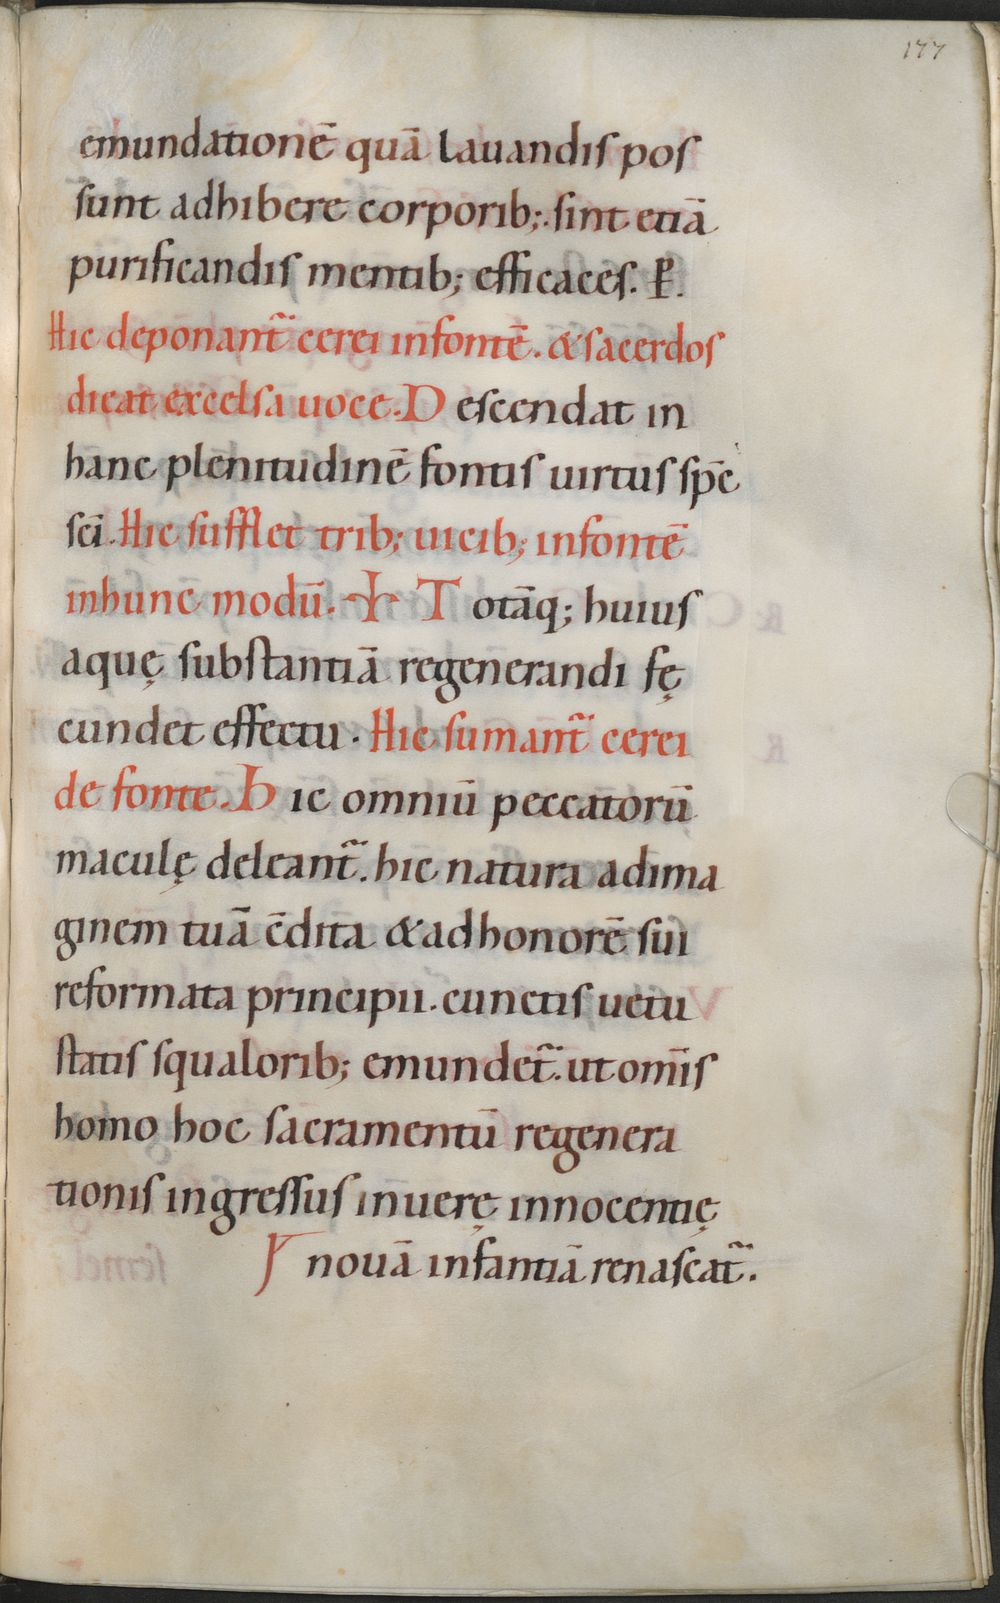 177
emundationē quā lauandis pos
sunt adhibere corporib;. sint etiā
purificandis mentib; efficaces. P̄.
Hic deponant᷑ cerei infontē. & sacerdos
dicat excelsa uoce. Descendat in
hanc plenitudinē fontis uirtus sp̄c
sc̄i. Hic sufflet trib; uicib; infontē
inhunc modū. ☩ Totāq; huius
aquę substantiā regenerandi fę
cundet effectu. Hic sumant᷑ cerei
de fonte. Hic omniū peccatorū
maculę deleant᷑. hic natura adima
ginem tuā c̄dita & adhonorē sui
reformata principii. cunctis uetu
statis squalorib; emundet᷑. ut om̄is
homo hoc sacramentū regenera
tionis ingressus inuerę innocentię
nouā infantiā renascat᷑.